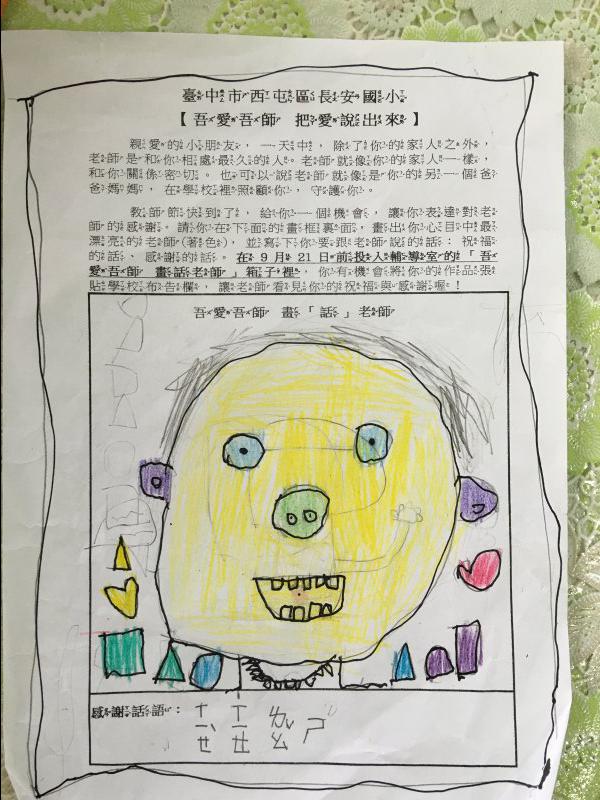 臺中市西屯區長安國小
【吾愛吾師 把愛說出來】
親愛的小朋友，一天中，除了你的家人之外，
老師是和你相處最久的人。老師就像你的家人一樣，
和你關係密切。也可以說老師就像是你的另一個爸
爸媽媽，在學校裡照顧你，守護你。
教師節快到了，給你一個機會，讓你表達對老
師的感謝。請你在下面的畫框裏面，畫出你心目中最
漂亮的老師(著色)，並寫下你要跟老師說的話：祝福
的話、感謝的話。在9月21日前投入輔導室的「吾
愛吾師 畫話老師」箱子裡，你有機會將你的作品張
貼學校布告欄，讓老師看見你的祝福與感謝喔！
吾愛吾師 畫「話」老師
感謝話語：